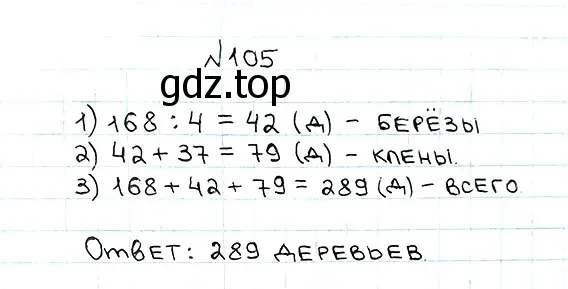 №105
gdz.top
1) 168 : 4 = 42 (д) - БЕРЁЗЫ
2) 42 + 37 = 79 (д) - КЛЕНЫ.
3) 168 + 42 + 79 = 289 (д) - ВСЕГО.
Ответ: 289 ДЕРЕВЬЕВ.